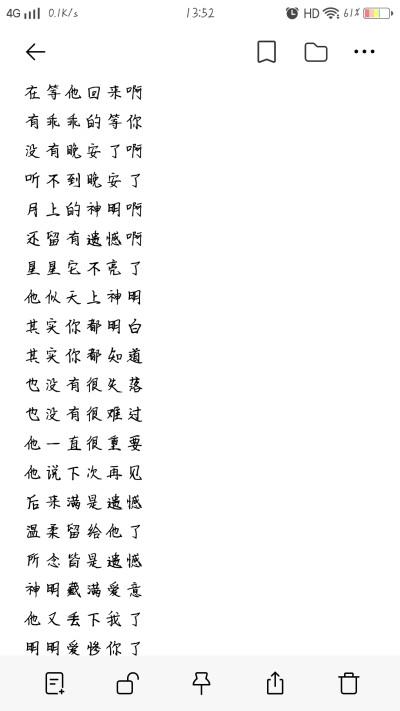 4G 0.1K/s 13:52 HD 61%
在等他回来啊
有乖乖的等你
没有晚安了啊
听不到晚安了
月上的神明啊
还留有遗憾啊
星星它不亮了
他似天上神明
其实你都明白
其实你都知道
也没有很失落
也没有很难过
他一直很重要
他说下次再见
后来满是遗憾
温柔留给他了
所念皆是遗憾
神明藏满爱意
他又丢下我了
明明爱惨你了